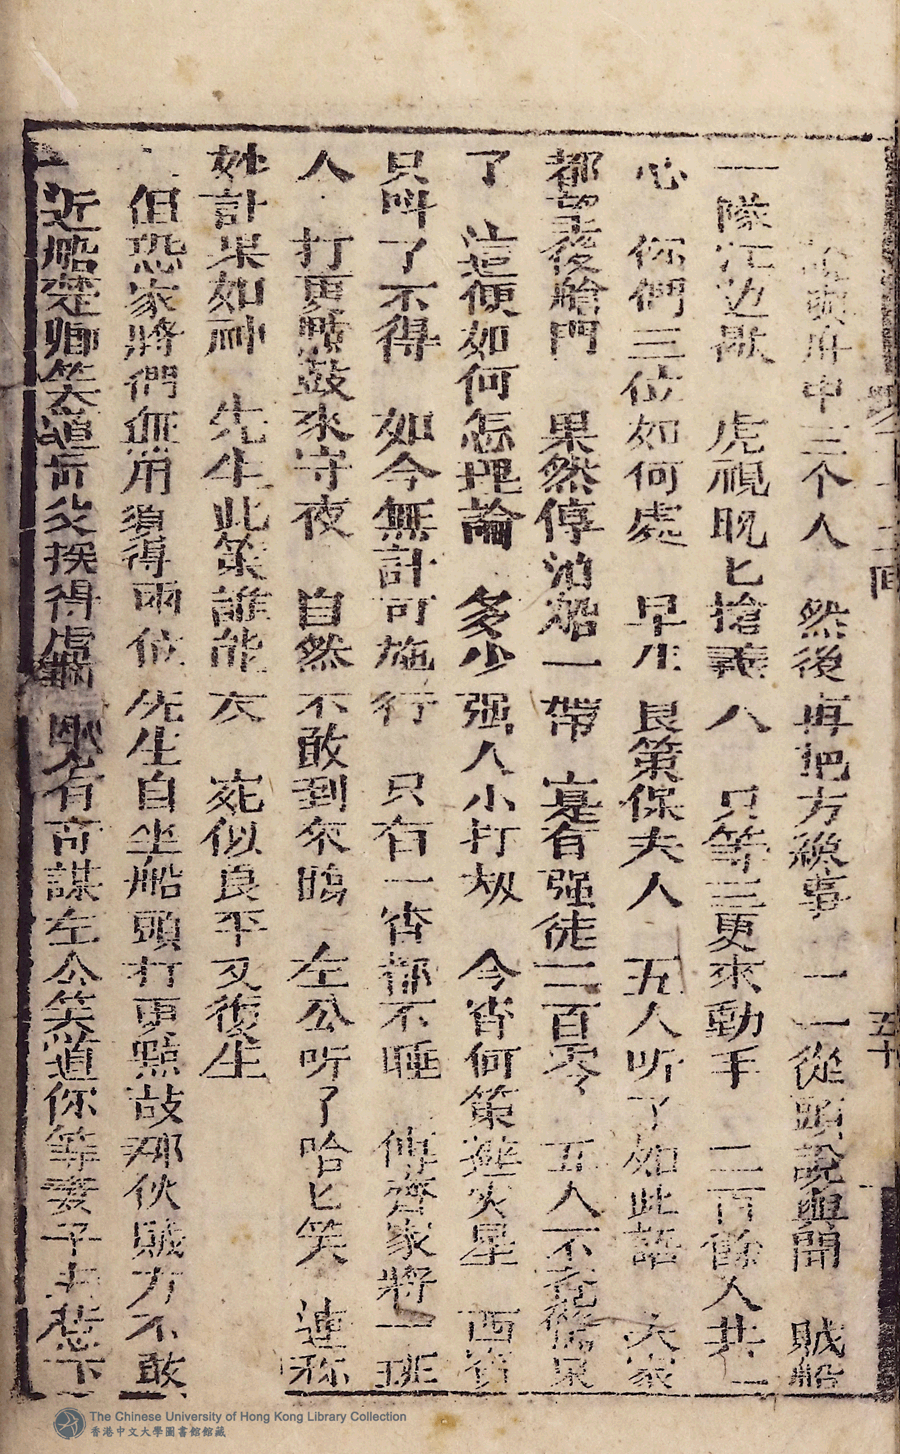 府中三个人 然後再把方纔事 一一從頭說與聞 賊船
一隊江边歇 虎視眈匕搶義人 只等三更來動手 二百餘人共一
心 你們三位如何處 早生良策保夫人 五人听了如此話 大家
都望後艙門 果然停泊船一帶 寔有强徒二百零 五人不
了 這便如何怎理論 多少强人小打刼 今宵何策 灾星 西
只叫了不得 如今無計可施行 只有一宵都不睡 傳齊家將一班
人 打更㸃鼓來守夜 自然不敢到來臨 左公听了哈匕笑 連称
妙計果如神 先生此策誰能及 宛似良平又復生
但恐家將們無用須得兩位先生自坐船頭打更㸃鼓那伙賊方不敢
近船楚卿笑道 得虎 有奇謀左公笑道你等妻子 下
五十
The Chinese University of Hong Kong Library Collection
香港中文大學圖書館館藏